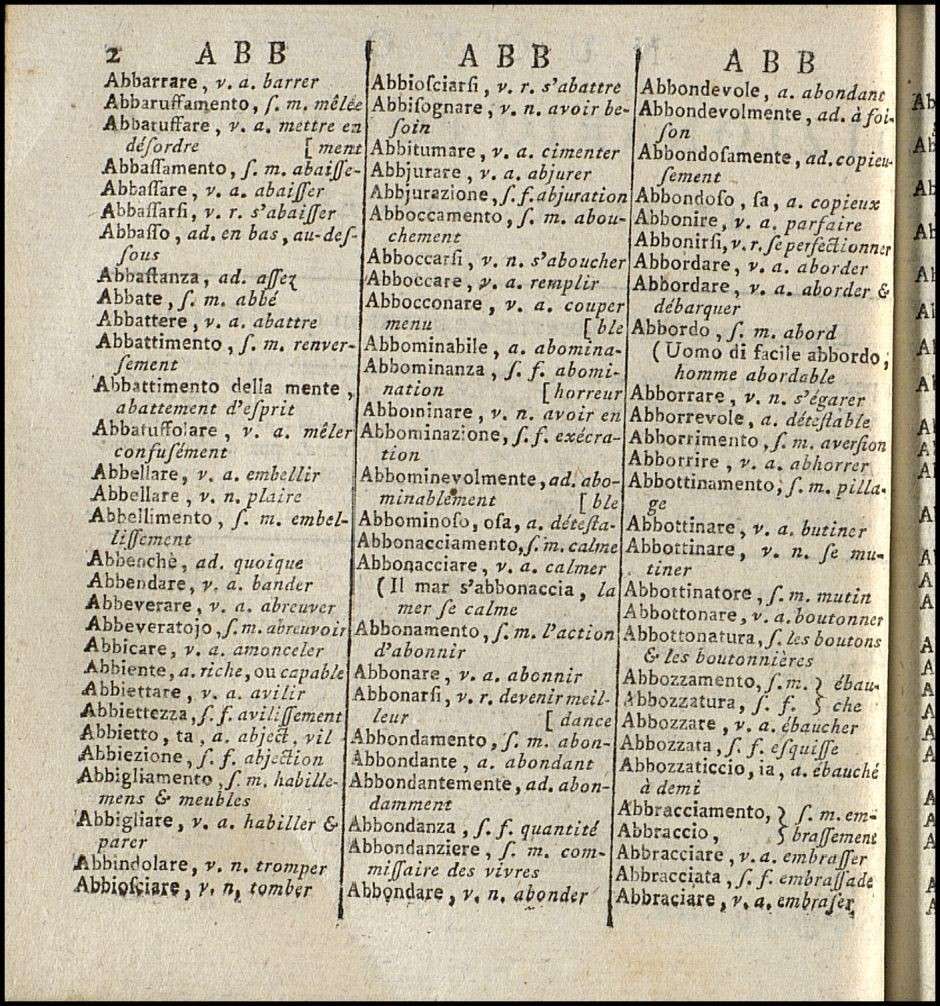 2 ABB
Abbarrare, v. a. barrer
Abbaruffamento, ſ. m. mêlée
Abbaruffare, v. a. mettre en
déſordre [ ment
Abbaſſamento, ſ. m. abaiſſe-
Abbaſſare, v. a. abaiſſer
Abbaſſarſi, v. r. s'abaiſſer
Abbaſſo, ad. en bas, au-deſ-
ſous
Abbaſtanza, ad. aſſez
Abbate, ſ. m. abbé
Abbattere, v. a. abattre
Abbattimento, ſ. m. renver-
ſement
Abbattimento della mente,
abattement d'eſprit
Abbatuffolare, v. a. mêler
confuſément
Abbellare, v. a. embellir
Abbellare, v. n. plaire
Abbellimento, ſ. m. embel-
liſſement
Abbenchè, ad. quoique
Abbendare, v. a. bander
Abbeverare, v. a. abreuver
Abbeveratojo, ſ. m. abreuvoir
Abbicare, v. a. amonceler
Abbiente, a. riche, ou capable
Abbiettare, v. a. avilir
Abbiettezza, ſ. f. aviliſſement
Abbietto, ta, a. abject, vil
Abbiezione, ſ. f. abjection
Abbigliamento, ſ. m. habille-
mens & meubles
Abbigliare, v. a. habiller &
parer
Abbindolare, v. n. tromper
Abbioſciare, v. n. tomber
ABB
Abbioſciarſi, v. r. s'abattre
Abbiſognare, v. n. avoir be-
ſoin
Abbitumare, v. a. cimenter
Abbjurare, v. a. abjurer
Abbjurazione, ſ. f. abjuration
Abboccamento, ſ. m. abou-
chement
Abboccarſi, v. n. s'aboucher
Abboccare, v. a. remplir
Abbocconare, v. a. couper
menu [ ble
Abbominabile, a. abomina-
Abbominanza, ſ. f. abomi-
nation [ horreur
Abbominare, v. n. avoir en
Abbominazione, ſ. f. exécra-
tion
Abbominevolmente, ad. abo-
minablement [ ble
Abbominoſo, oſa, a. déteſta-
Abbonacciamento, ſ. m. calme
Abbonacciare, v. a. calmer
(Il mar s'abbonaccia, la
mer ſe calme
Abbonamento, ſ. m. l'action
d'abonnir
Abbonare, v. a. abonnir
Abbonarſi, v. r. devenir meil-
leur [ dance
Abbondamento, ſ. m. abon-
Abbondante, a. abondant
Abbondantemente, ad. abon-
damment
Abbondanza, ſ. f. quantité
Abbondanziere, ſ. m. com-
miſſaire des vivres
Abbondare, v. n. abonder
ABB
Abbondevole, a. abondant
Abbondevolmente, ad. à foi-
ſon
Abbondoſamente, ad. copieu-
ſement
Abbondoſo, ſa, a. copieux
Abbonire, v. a. parfaire
Abbonirſi, v. r. ſe perfectionner
Abbordare, v. a. aborder
Abbordare, v. a. aborder &
débarquer
Abbordo, ſ. m. abord
(Uomo di facile abbordo,
homme abordable
Aborrare, v. n. s'égarer
Abborrevole, a. déteſtable
Abborrimento, ſ. m. averſion
Abborrire, v. a. abhorrer
Abbottinamento, ſ. m. pilla-
ge
Abbottinare, v. a. butiner
Abbottinare, v. n. ſe mu-
tiner
Abbottinatore, ſ. m. mutin
Abbottonare, v. a. boutonner
Abbottonatura, ſ. les boutons
& les boutonnières
Abbozzamento, ſ. m. } ébau-
Abbozzatura, ſ. f. } che
Abbozzare, v. a. ébaucher
Abbozzata, ſ. f. eſquiſſe
Abbozzaticcio, ia, a. ébauché
à demi
Abbracciamento, } ſ. m. em-
Abbraccio, } braſſement
Abbracciare, v. a. embraſſer
Abbracciata, ſ. f. embraſſade
Abbraciare, v. a. embraſer